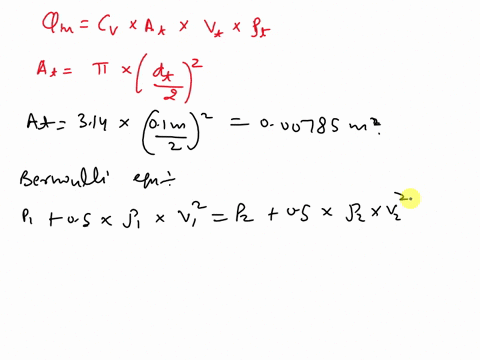 Qm = Cv × At × Vt × ρt
At = π × (dt/2)²
At = 3.14 × (0.1m/2)² = 0.00785 m².
Bernoulli eqn ÷
P1 + 0.5 × ρ1 × V1² = P2 + 0.5 × ρ2 × V2²